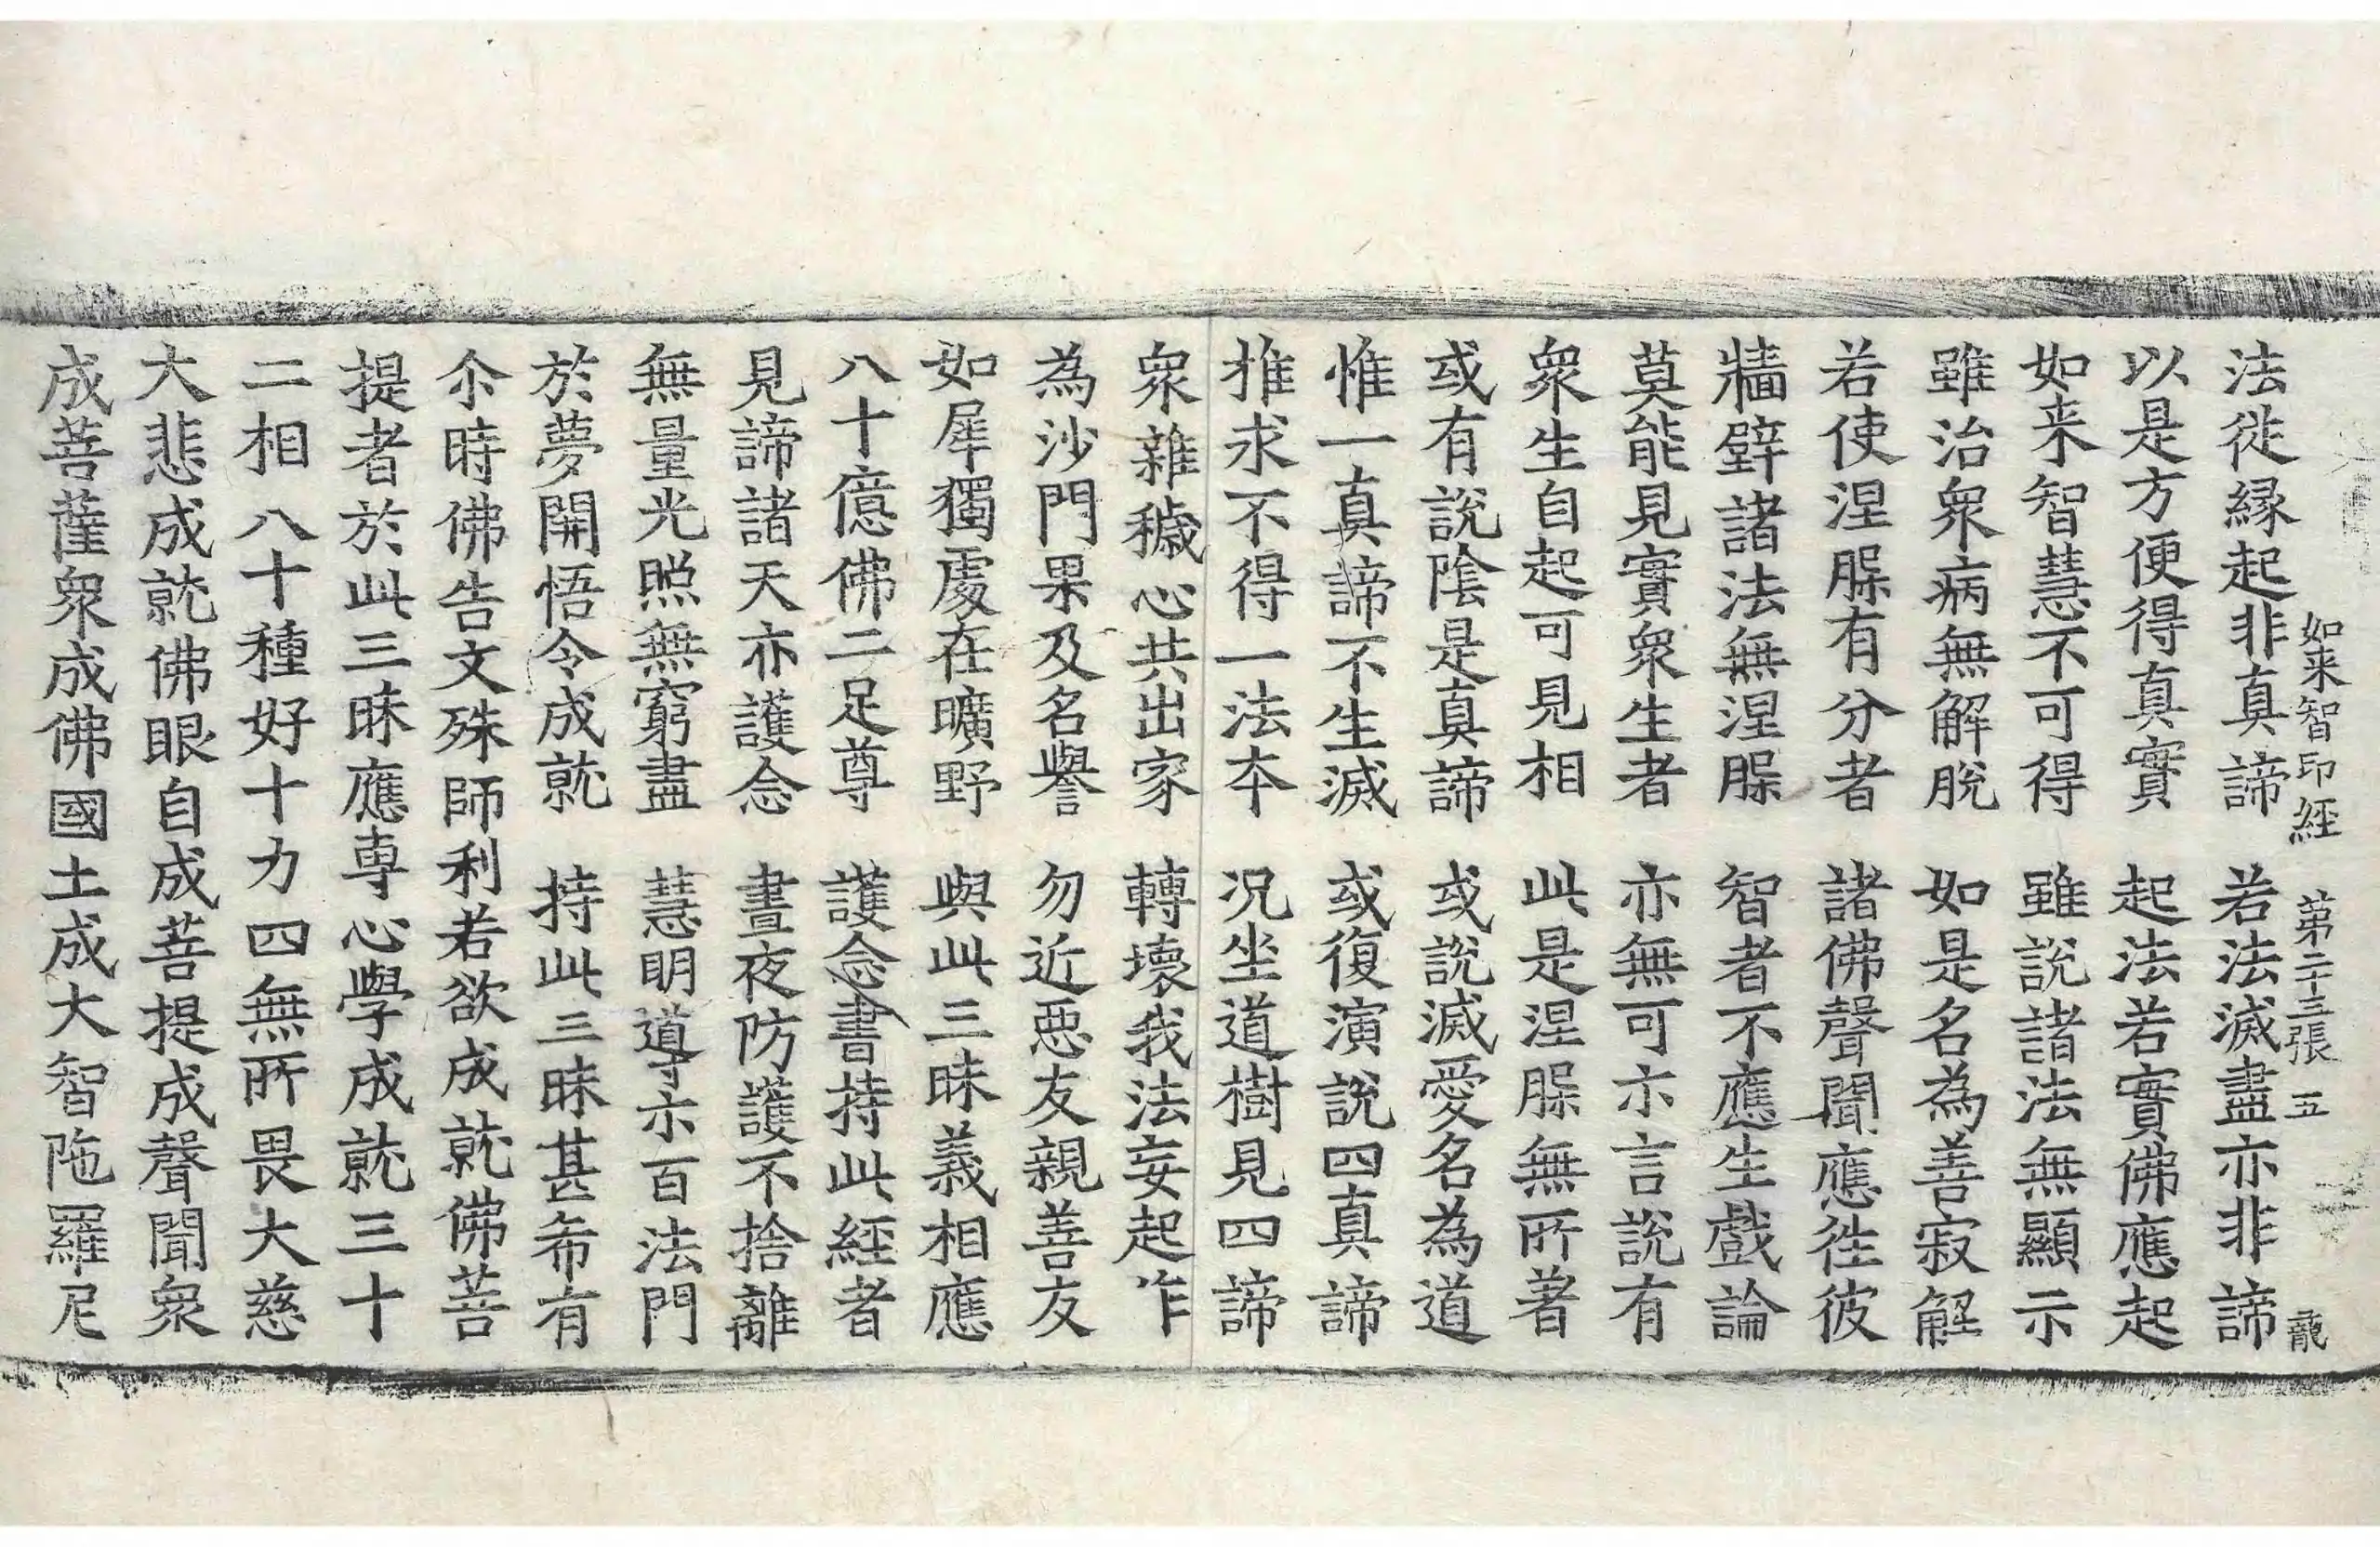 如来智印經 第二十三張 五 龍
法從縁起非真諦 若法滅盡亦非諦
以是方便得真實 起法若實佛應起
如来智慧不可得 雖說諸法無顯示
雖治衆病無解脫 如是名為善寂解
若使涅腂有分者 諸佛聲聞應徃彼
牆壁諸法無涅腂 智者不應生戲論
莫能見實衆生者 亦無可示言說有
衆生自起可見相 此是涅腂無所著
或有說陰是真諦 或說滅愛名為道
惟一真諦不生滅 或復演說四真諦
推求不得一法夲 况坐道樹見四諦
衆雜穢心共出家 轉壞我法妄起作
為沙門果及名譽 勿近惡友親善友
如犀獨處在曠野 與此三昧義相應
八十億佛二足尊 護念書持此經者
見諦諸天亦護念 晝夜防護不捨離
無量光照無窮盡 慧明導示百法門
於夢開悟令成就 持此三昧甚希有
尒時佛告文殊師利若欲成就佛菩
提者於此三昧應專心學成就三十
二相八十種好十力四無所畏大慈
大悲成就佛眼自成菩提成聲聞衆
成菩薩衆成佛國土成大智陁羅尼